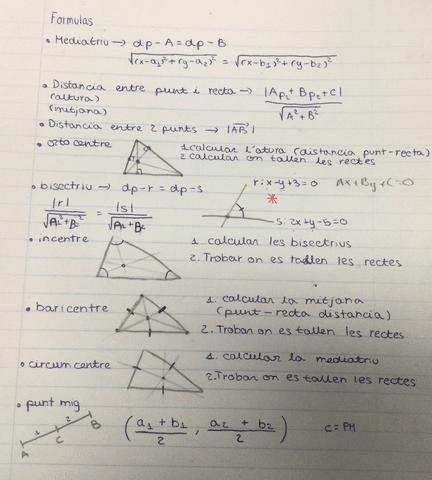 Formulas
• Mediatriu → dp-A = dp-B
√(x-a₁)²+(y-a₂)² = √(x-b₁)²+(y-b₂)²
• Distancia entre punt i recta → |Ap₁ + Bp₂ + c| / √A²+B²
(altura)
(mitjana)
• Distancia entre 2 punts → |AB|
• orto centre
1. calcular l'atura (distancia punt-recta)
2 calcular on tallen les rectes
• bisectriu → dp-r = dp-s
r: x-y+3=0 Ax+By+C=0
|r| / √A₁²+B₁² = |s| / √A₂²+B₂²
*
s: 2x+y-5=0
• incentre
1. calcular les bisectrius
2. Trobar on es tallen les rectes
• baricentre
1. calcular la mitjana
(punt-recta distancia)
2. Trobar on es tallen les rectes
• circumcentre
1. calcular la mediatriu
2. Trobar on es tallen les rectes
• punt mig
A 1 C 2 B
(a₁ + b₁ / 2 , a₂ + b₂ / 2) c = PM